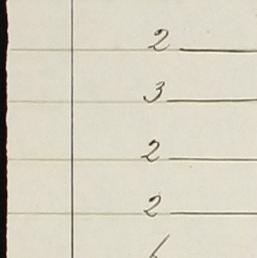 2
3
2
2